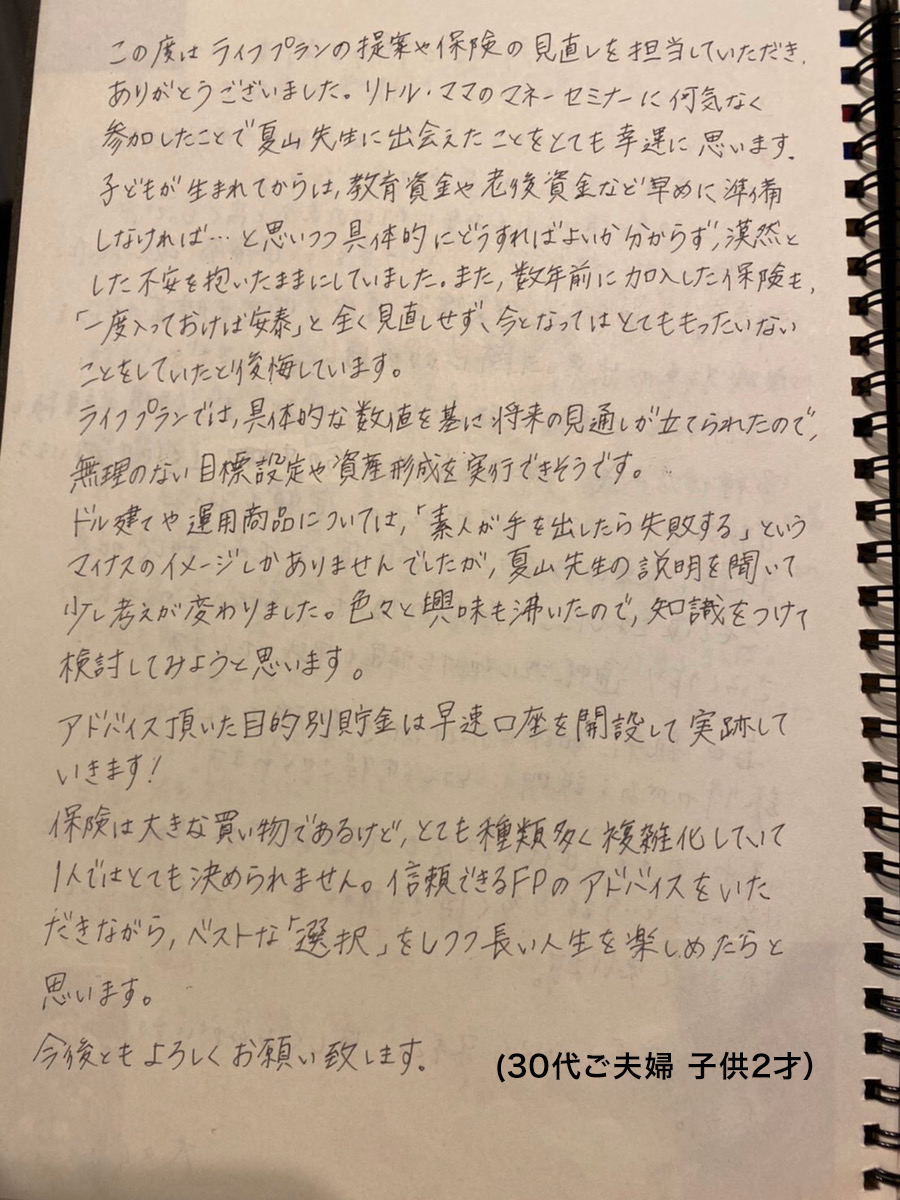 この度はライフプランの提案や保険の見直しを担当していただき、
ありがとうございました。リトル・ママのマネーセミナーに何気なく
参加したことで夏山先生に出会えたことをとても幸運に思います。
子どもが生まれてからは、教育資金や老後資金など早めに準備
しなければ…と思いつつ具体的にどうすればよいか分からず、漠然と
した不安を抱いたままにしていました。また、数年前に加入した保険も、
「一度入っておけば安泰」と全く見直しせず、今となってはとてももったいない
ことをしていたと後悔しています。
ライフプランでは、具体的な数値を基に将来の見通しが立てられたので、
無理のない目標設定や資産形成を実行できそうです。
ドル建てや運用商品については、「素人が手を出したら失敗する」という
マイナスのイメージしかありませんでしたが、夏山先生の説明を聞いて
少し考えが変わりました。色々と興味も沸いたので、知識をつけて
検討してみようと思います。
アドバイス頂いた目的別貯金は早速口座を開設して実跡して
いきます!
保険は大きな買い物であるけど、とても種類多く複雑化していて
1人ではとても決められません。信頼できるFPのアドバイスをいた
だきながら、ベストな「選択」をしつつ長い人生を楽しめたらと
思います。
今後ともよろしくお願い致します。
(30代ご夫婦 子供2才)